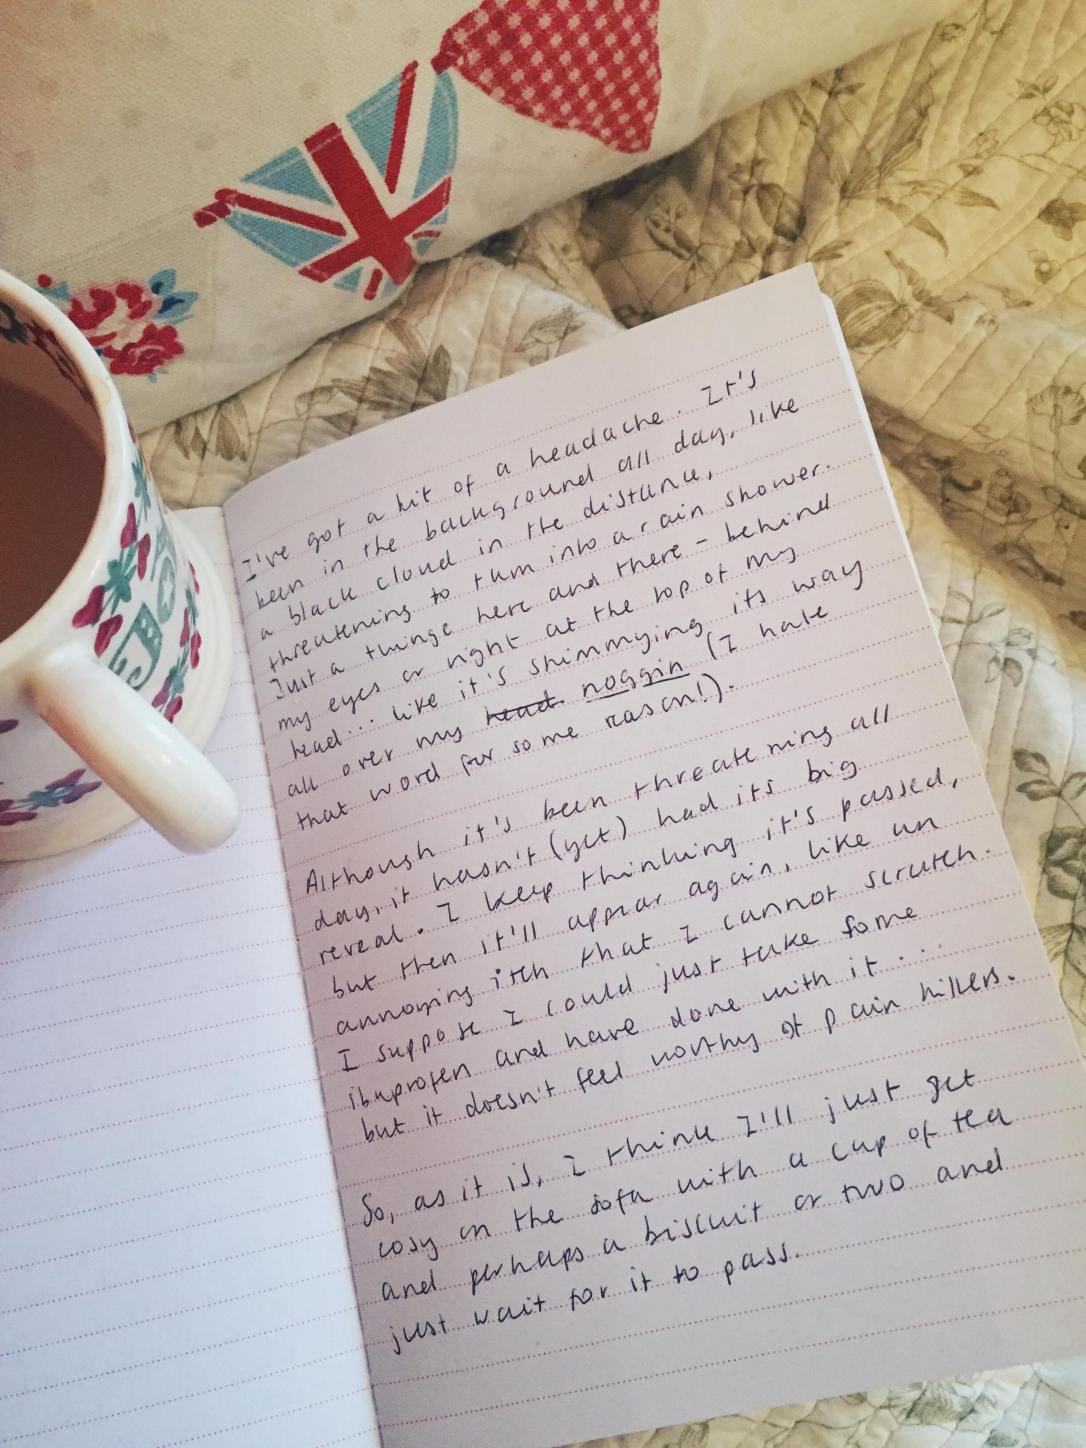 I've got a bit of a headache. It's
been in the background all day, like
a black cloud in the distance,
threatening to turn into a rain shower.
Just a thinge here and there - behind
my eyes or right at the top of my
head... like it's shimmying its way
all over my head noggin (I hate
that word for some reason!).
Although it's been threatening all
day, it hasn't (yet) had its big
reveal. I keep thinking it's passed,
but then it'll appear again, like an
annoying itch that I cannot scratch.
I suppose I could just take some
ibuprofen and have done with it...
but it doesn't feel worthy of pain killers.
So, as it is, I think I'll just get
cosy on the sofa with a cup of tea
and perhaps a biscuit or two and
just wait for it to pass.